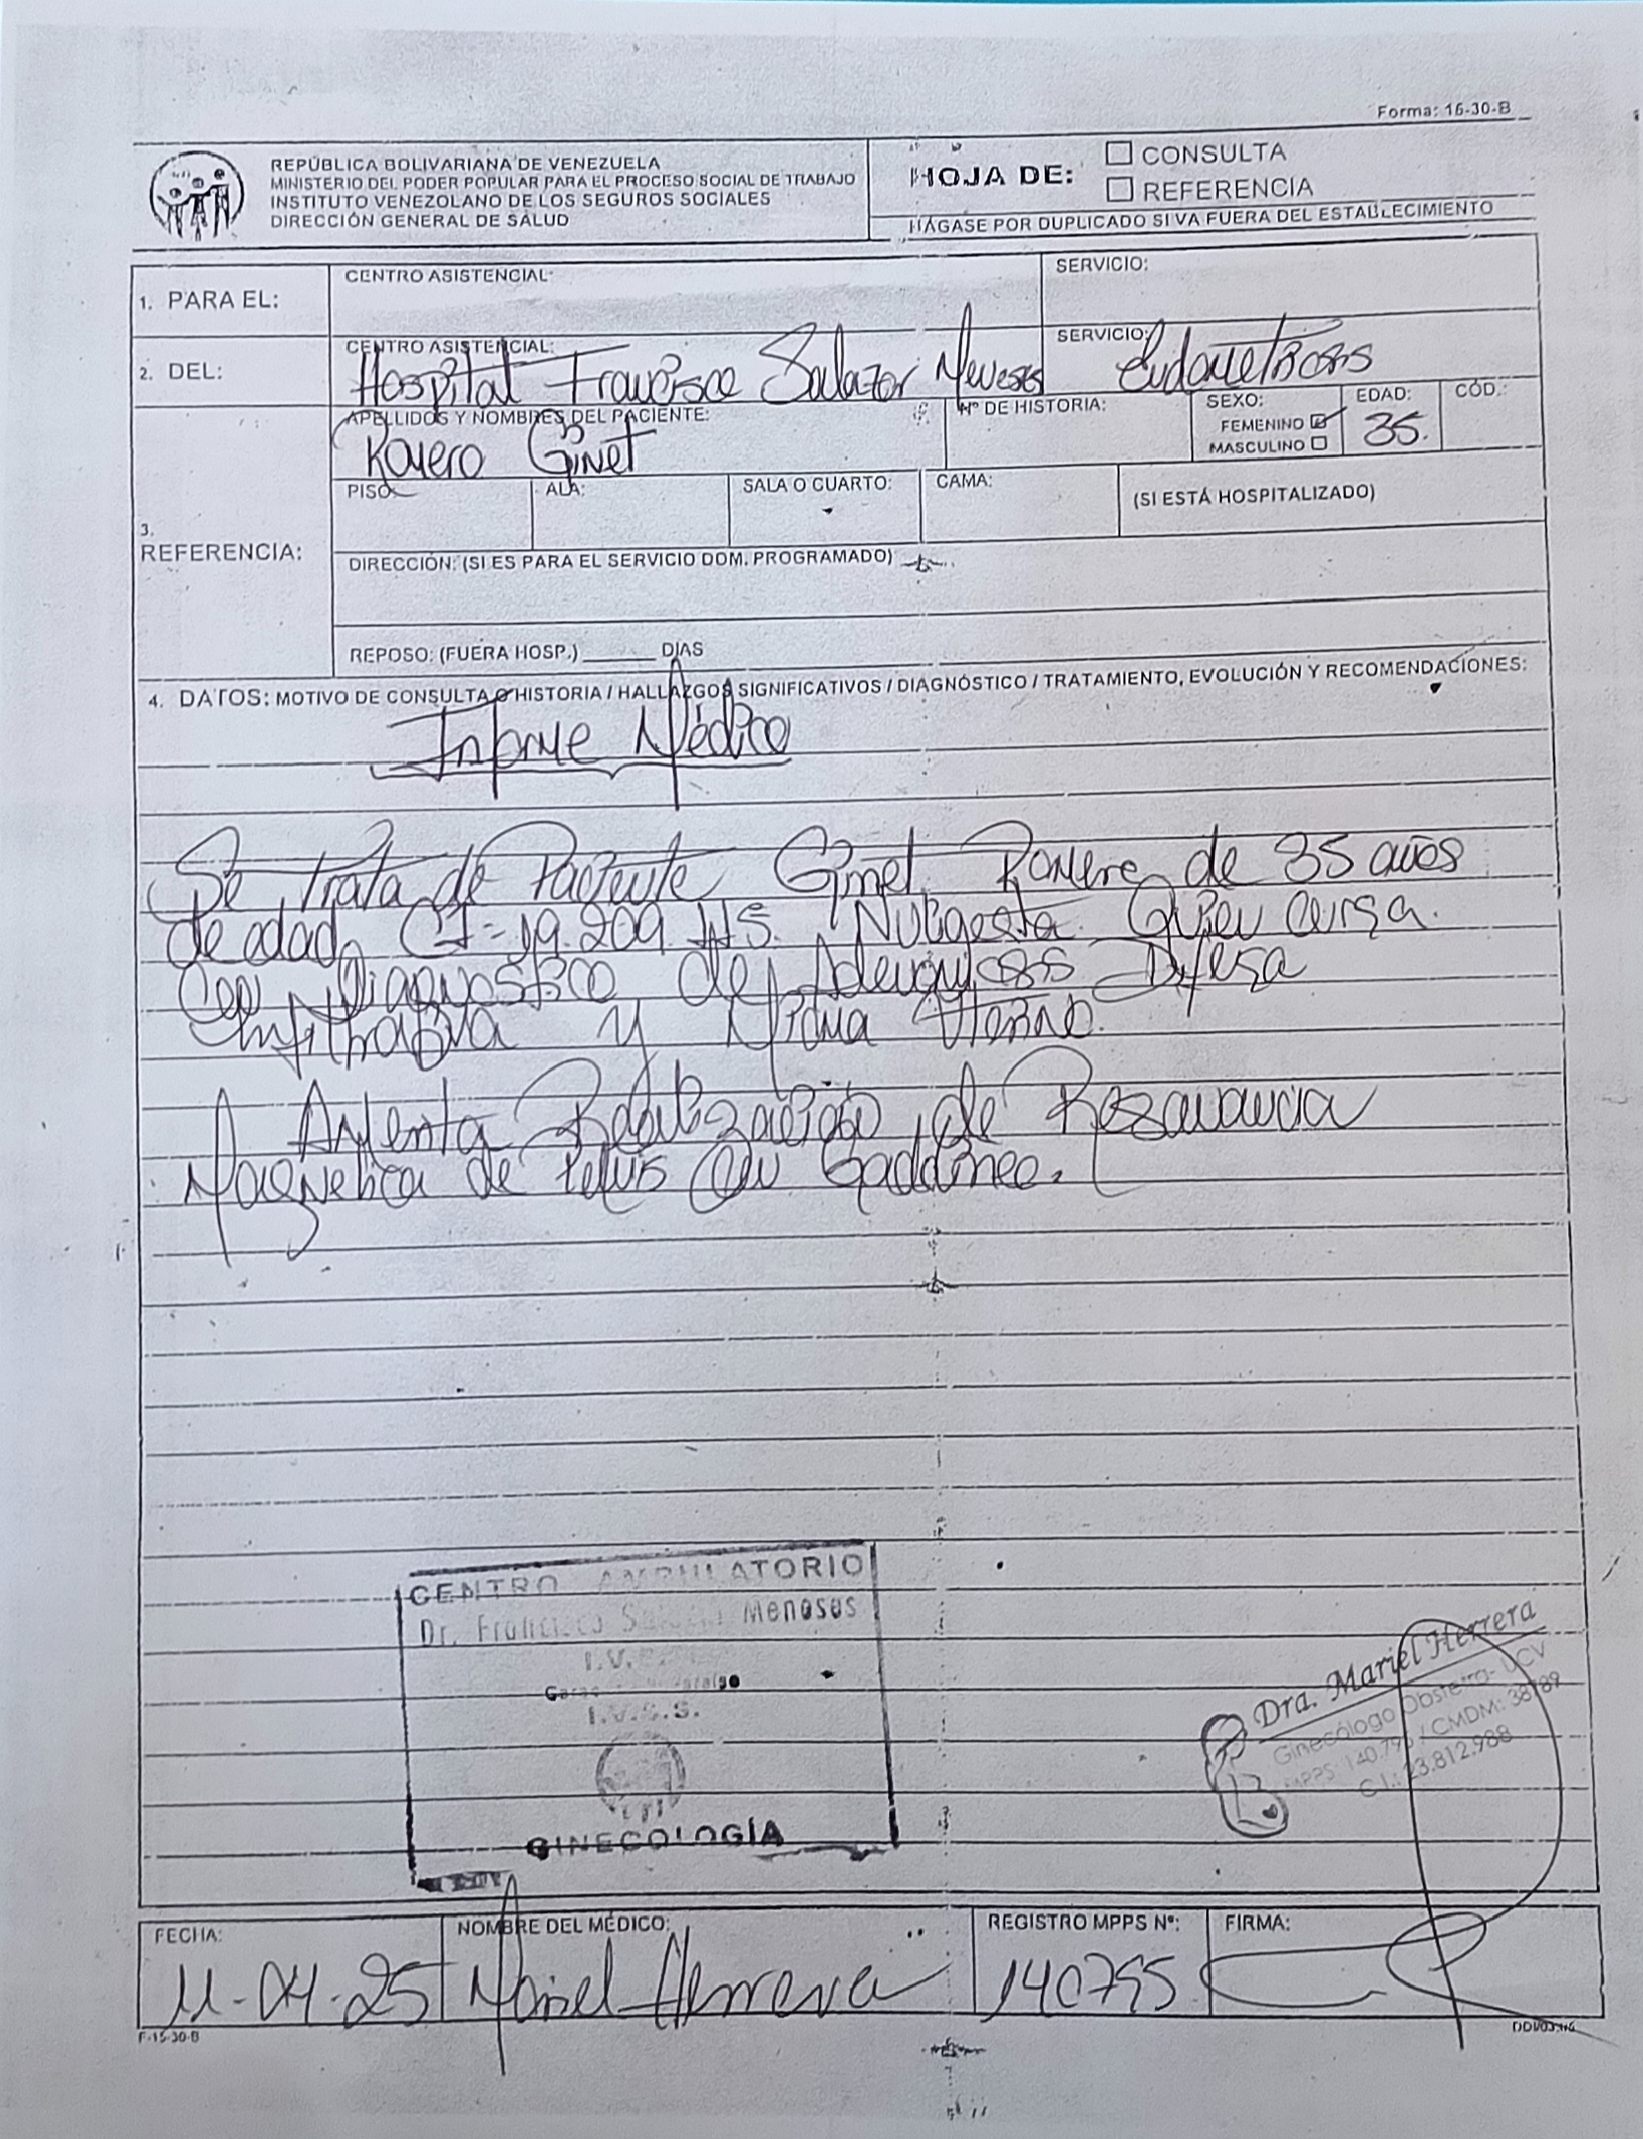 Forma: 15-30-B
REPÚBLICA BOLIVARIANA DE VENEZUELA
MINISTERIO DEL PODER POPULAR PARA EL PROCESO SOCIAL DE TRABAJO
INSTITUTO VENEZOLANO DE LOS SEGUROS SOCIALES
DIRECCIÓN GENERAL DE SALUD
HOJA DE:
CONSULTA
REFERENCIA
HÁGASE POR DUPLICADO SI VA FUERA DEL ESTABLECIMIENTO
1. PARA EL:
CENTRO ASISTENCIAL:
SERVICIO:
2. DEL:
CENTRO ASISTENCIAL:
Hospital Francisco Salazar Meneses
SERVICIO:
Endometriosis
3. REFERENCIA:
APELLIDOS Y NOMBRES DEL PACIENTE:
Ginet
Nº DE HISTORIA:
SEXO:
FEMENINO
MASCULINO
EDAD:
35.
CÓD.:
PISO
ALA:
SALA O CUARTO:
CAMA:
(SI ESTÁ HOSPITALIZADO)
DIRECCIÓN: (SI ES PARA EL SERVICIO DOM. PROGRAMADO)
REPOSO: (FUERA HOSP.) ______ DIAS
4. DATOS: MOTIVO DE CONSULTA O HISTORIA / HALLAZGOS SIGNIFICATIVOS / DIAGNÓSTICO / TRATAMIENTO, EVOLUCIÓN Y RECOMENDACIONES:
Informe Médico
Se trata de Paciente Ginet de 35 años
de edad CI= 19.209. Nuligesta Quien cursa
con Diagnostico de Adenomiosis Difusa
Infiltrativa y Mioma Uterino.
Amerita Realización de Resonancia
Magnetica de Pelvis con Gadolineo.
CENTRO AMBULATORIO
Dr. Francisco Salazar Meneses
I.V.S.S.
GINECOLOGÍA
Dra. Mariel Herrera
Ginecólogo Obstetra- UCV
MPPS: 140.795 / CMDM: 38789
C.I.: 23.812.988
FECHA:
11-04-25
NOMBRE DEL MÉDICO:
Mariel Herrera
REGISTRO MPPS Nº:
140795
FIRMA:
F-15-30-B